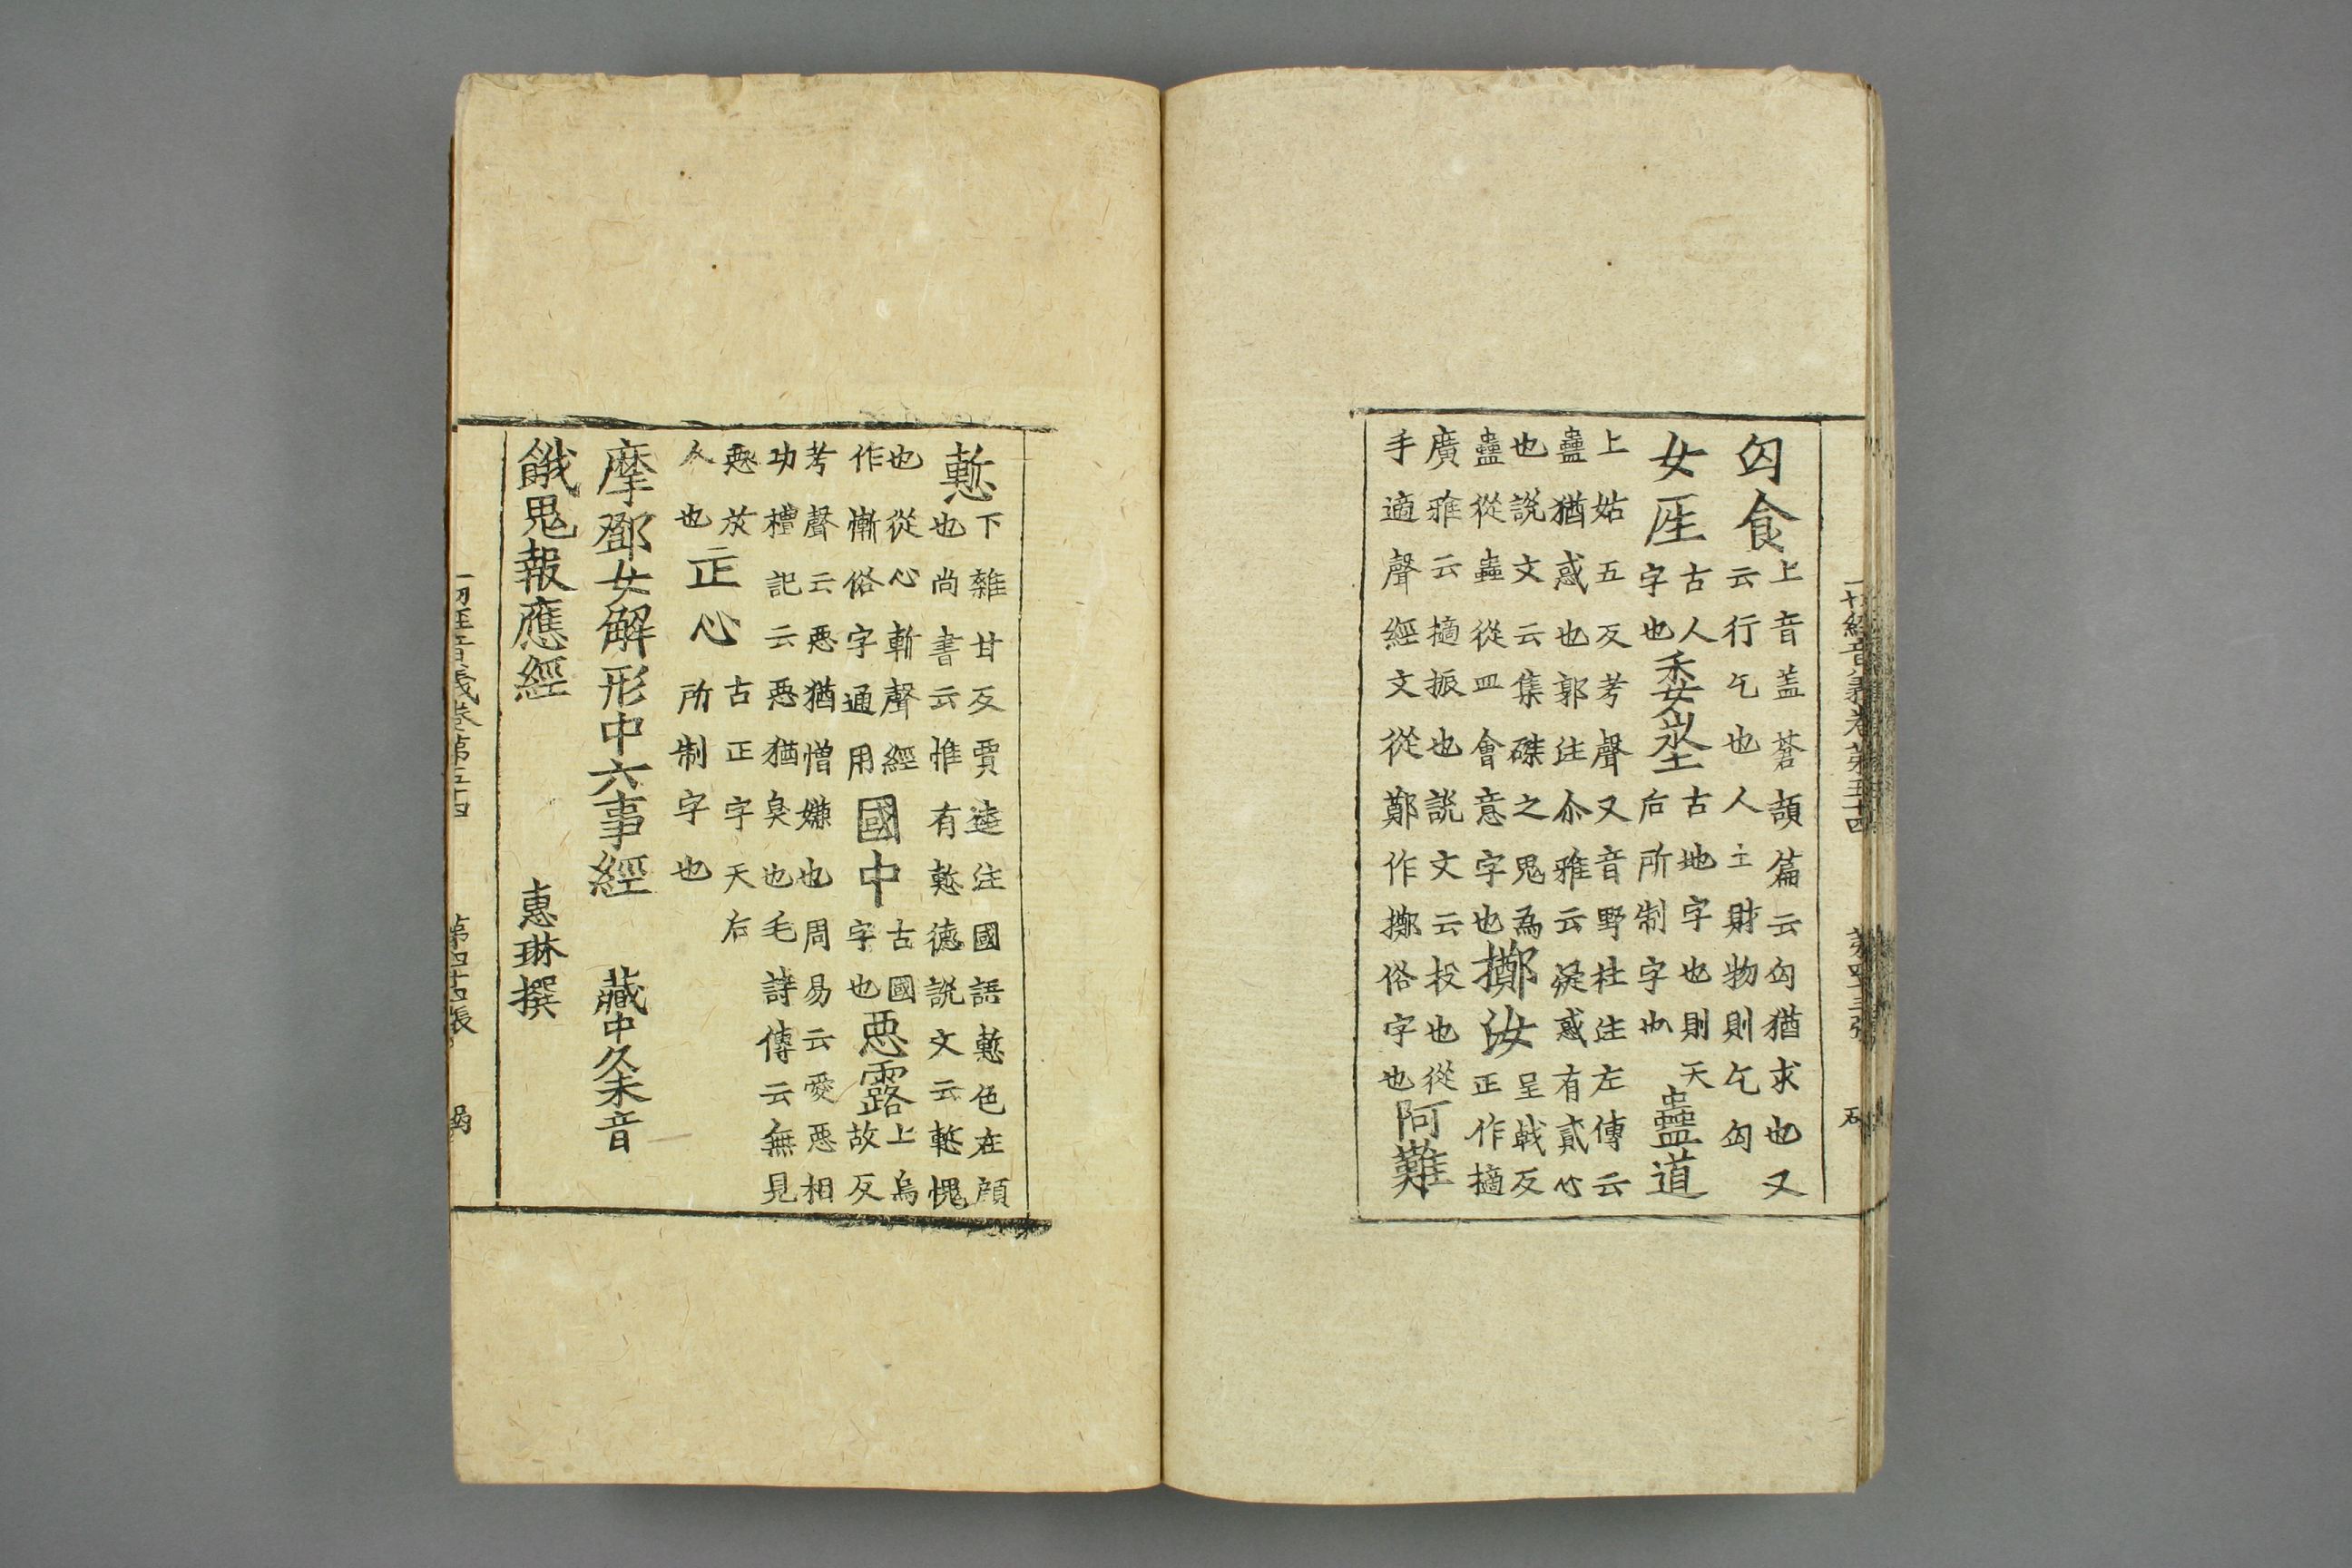 一切經音義卷第五十四　第四十三張
匃食上音蓋蒼頡篇云匃猶求也又
云行乞也人主財物則乞匃
女𤯔古人字也埊古地字也則天
后所制字也蠱道
上姑五反考聲又音野杜注左傳云
蠱猶惑也郭注尒雅云疑惑有貳心
也說文云集磔之鬼爲
蠱從蟲從皿會意字也擲汝呈戟反正作擿
廣雅云擿振也說文云投也從
手適聲經文從鄭作擲俗字也阿難
慙下雜甘反賈逵注國語慙色在顔
也尚書云惟有慙德說文云慙愧
也從心斬聲經作慚俗字通用國中古國字也惡露上烏故反
考聲云惡猶憎嫌也周易云愛惡相
功禮記云惡猶臭也毛詩傳云無見
惡於人也正心古正字天后所制字也
摩鄧女解形中六事經　藏中久未音
餓鬼報應經　惠琳撰
一切經音義卷第五十四　第四十四張